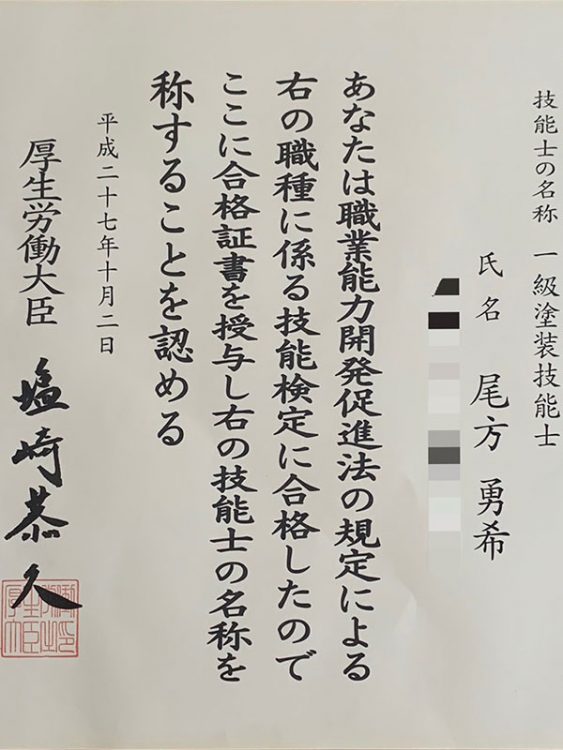 技能士の名称 一級塗装技能士
氏名 尾方 勇希
あなたは職業能力開発促進法の規定による
右の職種に係る技能検定に合格したので
ここに合格証書を授与し右の技能士の名称を
称することを認める
平成二十七年十月二日
厚生労働大臣 塩崎恭久